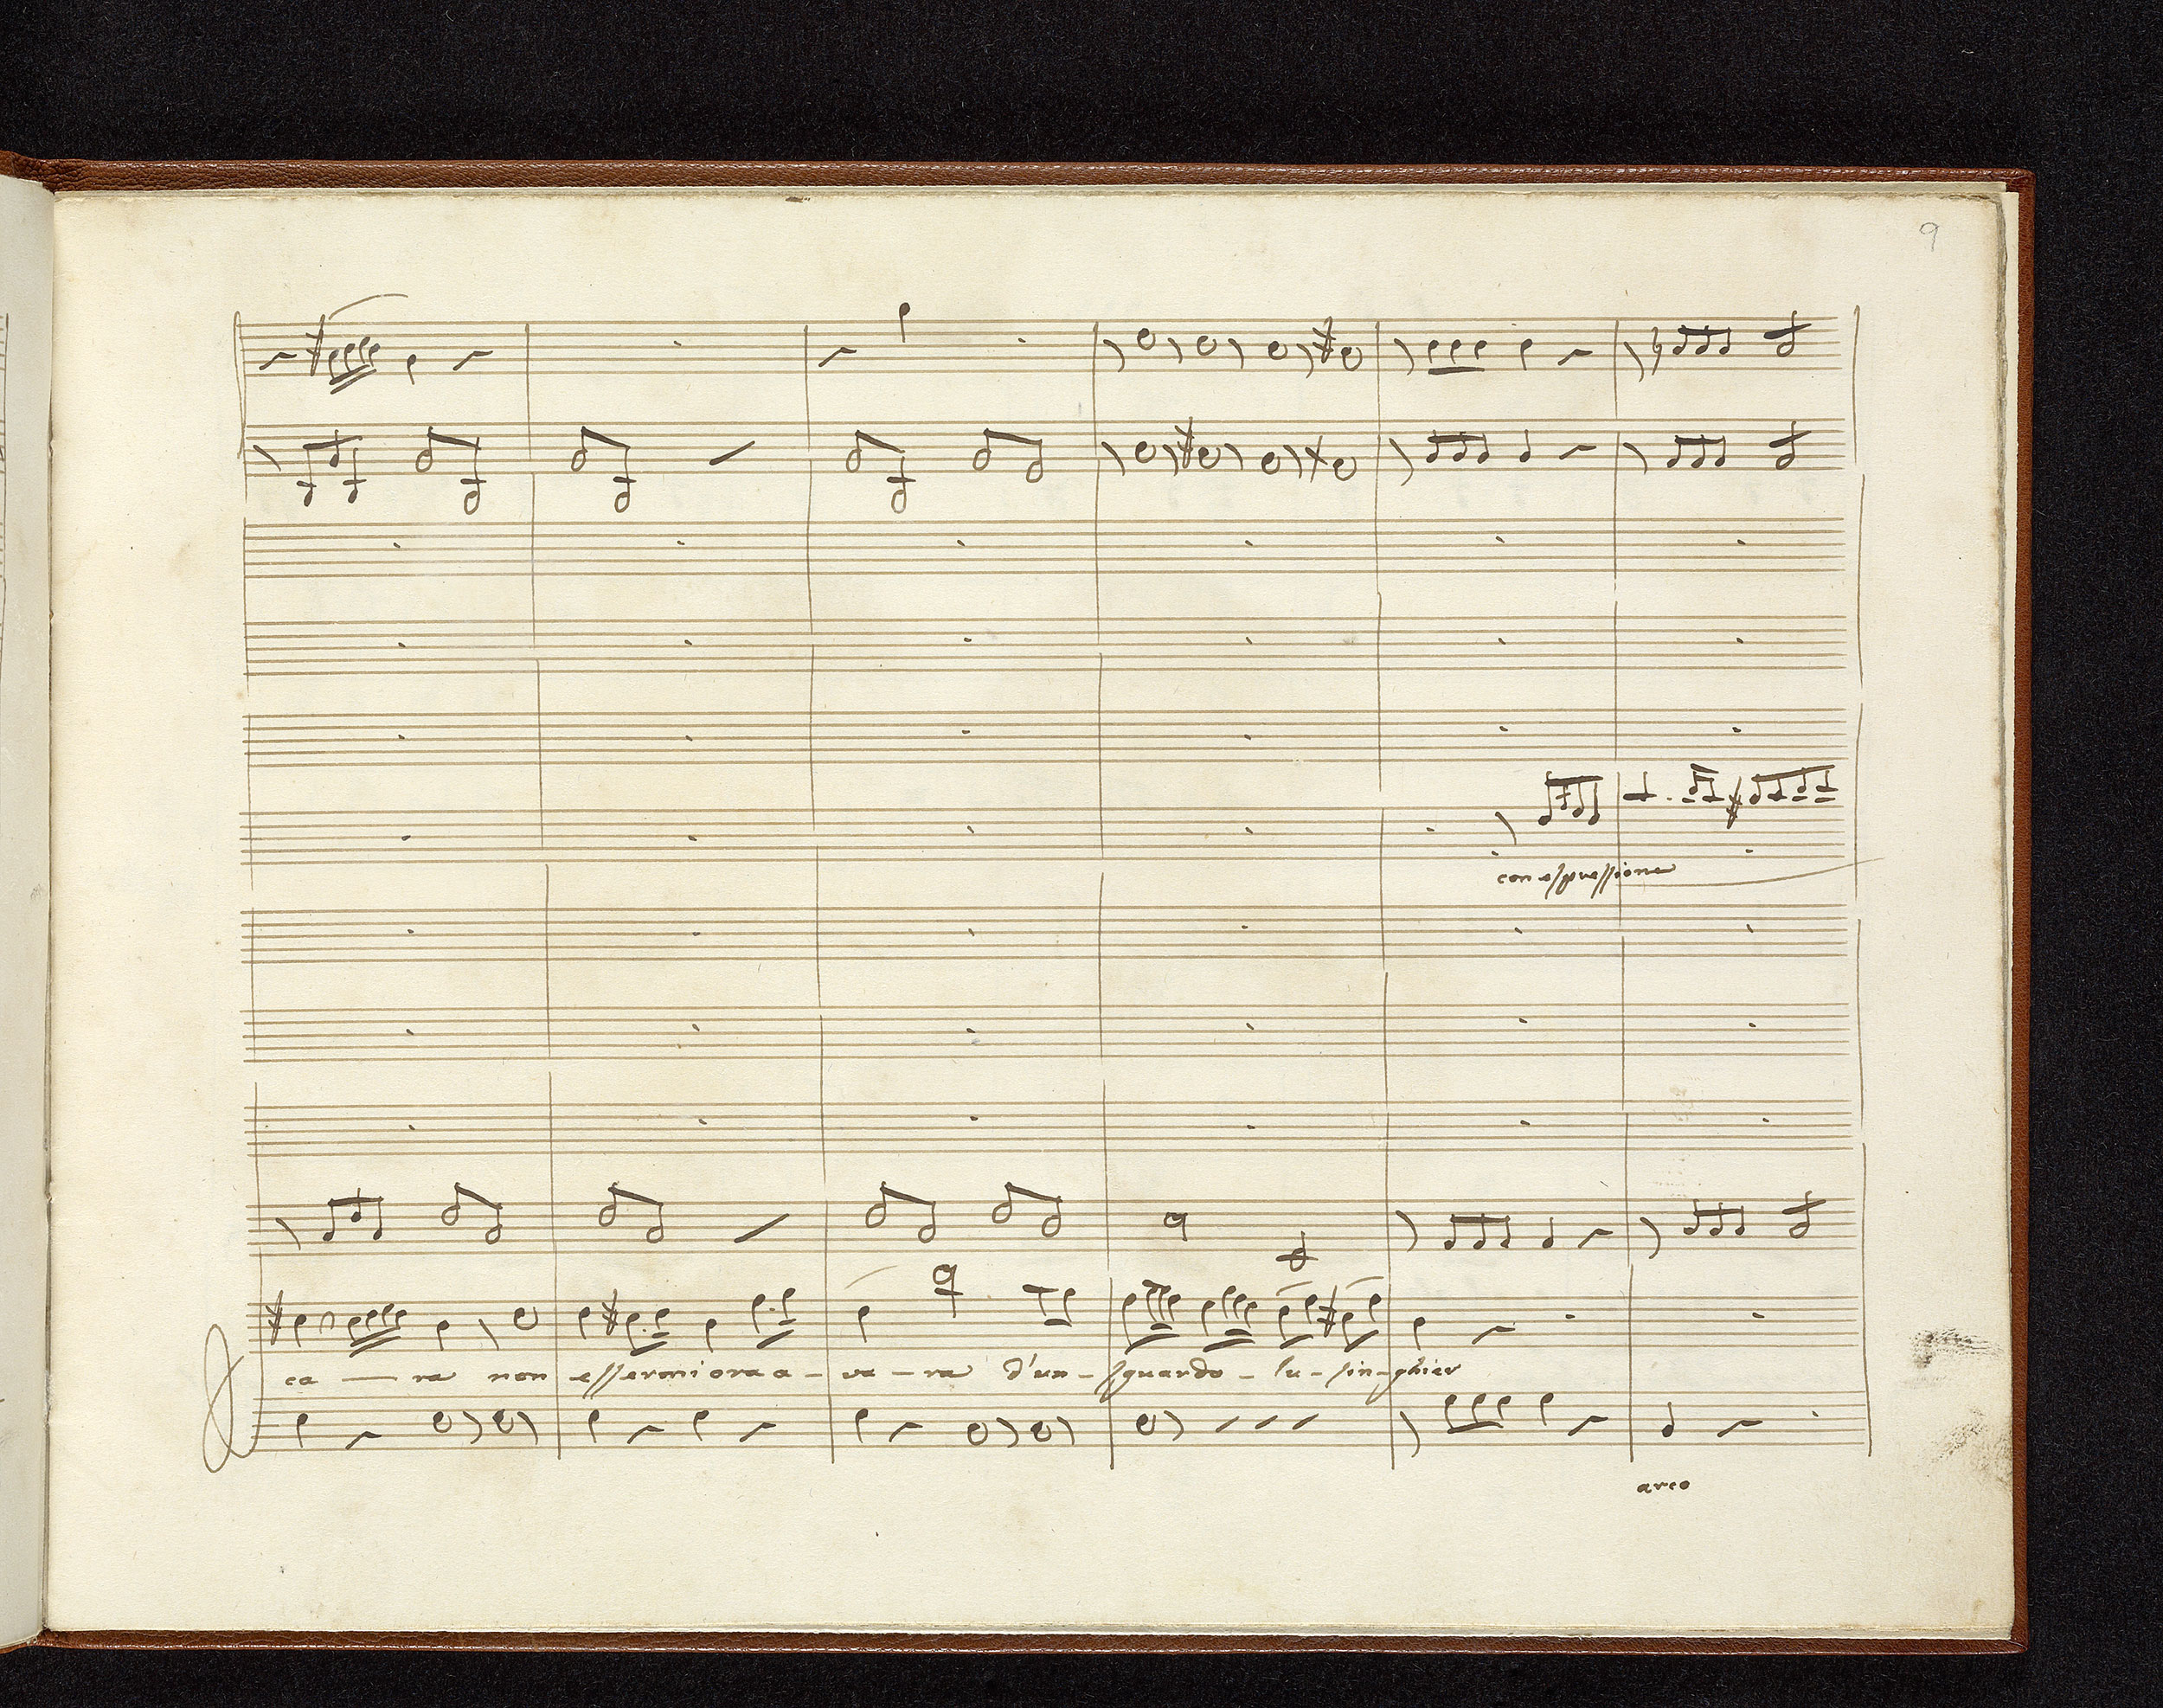 9
con espressione
ca — ra non essermi ora a – va – ra d'un – sguardo – lu – sin – ghier
arco